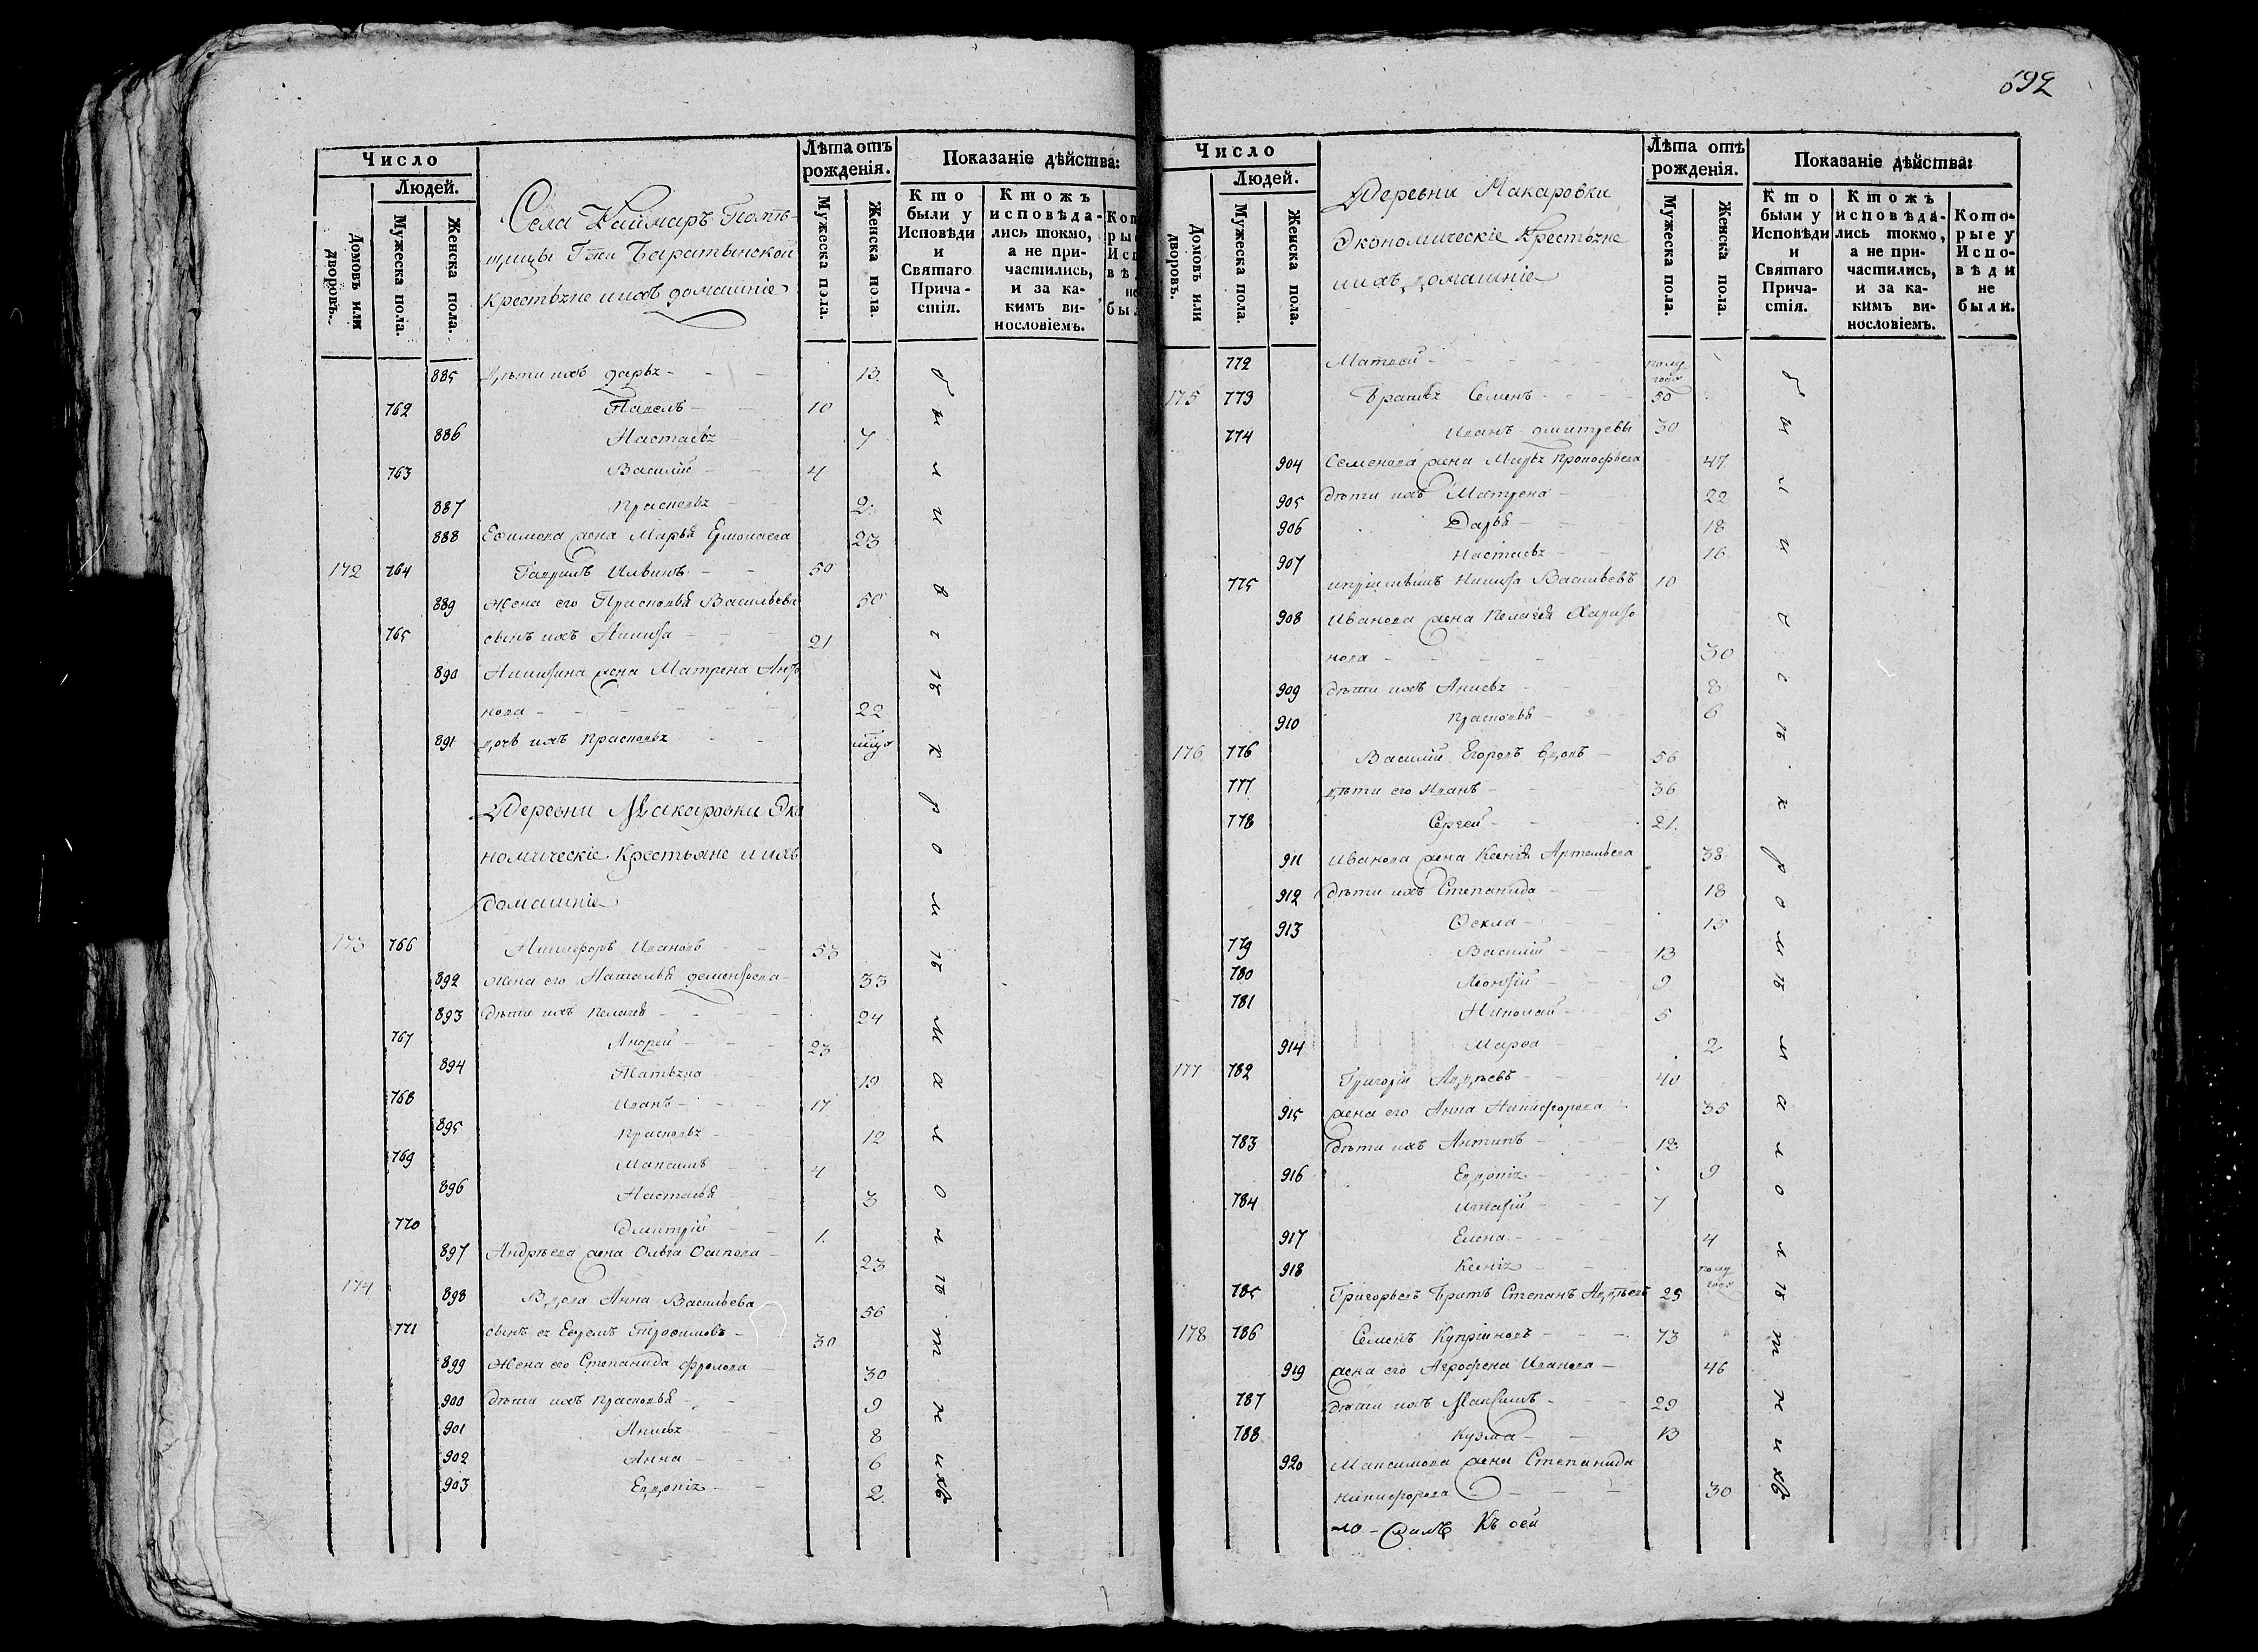 692
Число
Людей.
Домовъ или дворовъ.
Мужеска пола.
Женска пола.
Села Каймаръ Помѣ-
щицы Гжи Баратынской
крестьяне и ихъ домашніе
Лѣта отъ рожденія.
Мужеска пола.
Женска пола.
Показаніе дѣйства:
Кто были у Исповѣди и Святаго Причастія.
Ктожъ исповѣдались токмо, а не причастились, и за какимъ винословіемъ.
885 дѣти ихъ дарья 13.
762 Павелъ 10
886 Настасья 7
763 Василій 4
887 Прасковья 2.
888 Ефимова жена Марья Ермолаева 23
172 764 Гаврилъ 50
889 Жена его Прасковья Васильева 50
765 сынъ ихъ Никита 21
890 Никитина жена Матрена Анто
нова 22
891 дочь ихъ Прасковья
Деревни Макаровки Эко
номическіе Крестьяне и ихъ
домашніе
173 766 Никифоръ Ивановъ 53
892 Жена его Наталья дементьева 53
893 дѣти ихъ Пелагея 24
767 Андрей 23
894 Татьяна 19
768 Иванъ 17
895 Прасковья 12
769 Максимъ 4
896 Настасья 3
770 Дмитрій 1.
897 Андрѣева жена Ольга Осипова 23
174 898 Вдова Анна Васильева 56
771 сынъ ея Ефремъ Трофимовъ 30
899 Жена его Степанида Фролова 30
900 дѣти ихъ Прасковья 9
901 Анисья 8
902 Анна 6
903 Евдокія 2.
были в г ѣ х р о м ѣ м а л о л ѣ т н и хъ
Число
Людей.
Домовъ или дворовъ.
Мужеска пола.
Женска пола.
Деревни Макаровки
Экономическіе Крестьяне
и ихъ домашніе
Лѣта отъ рожденія.
Мужеска пола.
Женска пола.
Показаніе дѣйства:
Кто были у Исповѣди и Святаго Причастія.
Ктожъ исповѣдались токмо, а не причастились, и за какимъ винословіемъ.
Которые у Исповѣди не были.
772 Матвей полу года
175 773 Братья Семенъ 50
774 Иванъ дмитревы 30
904 Семенова жена Марья Прокофьева 47.
905 дѣти ихъ Матрена 22
906 Дарья 18
907 Настасья 16
775 Никита Васильевъ 10
908 Иванова жена Пелагея Харито
нова 30
909 дѣти ихъ Анисья 8
910 Прасковья 6
176 776 Василій Егоровъ вдовъ 56
777 дѣти его Иванъ 36
778 Сергей 21.
911 Иванова жена Ксенія Артемьева 38
912 дѣти ихъ Степанида 18
913 Фекла 15
779 Василій 13
780 Леонтій 9
781 Николай 5
914 Марфа 2
177 782 Григорій Авдѣевъ 40
915 жена его Анна Никифорова 35
783 дѣти ихъ Антипъ 12
916 Евдокія 9
784 Игнатій 7
917 Елена 4
918 Ксенія полу года
785 Григорьевъ Братъ Степанъ Авдѣевъ 25
178 786 Семенъ Купріяновъ 73
919 жена его Агрофена Иванова 46
787 дѣти ихъ Максимъ 29
788 Кузма 13
920 Максимова жена Степанида
Никифорова 30
Къ сей